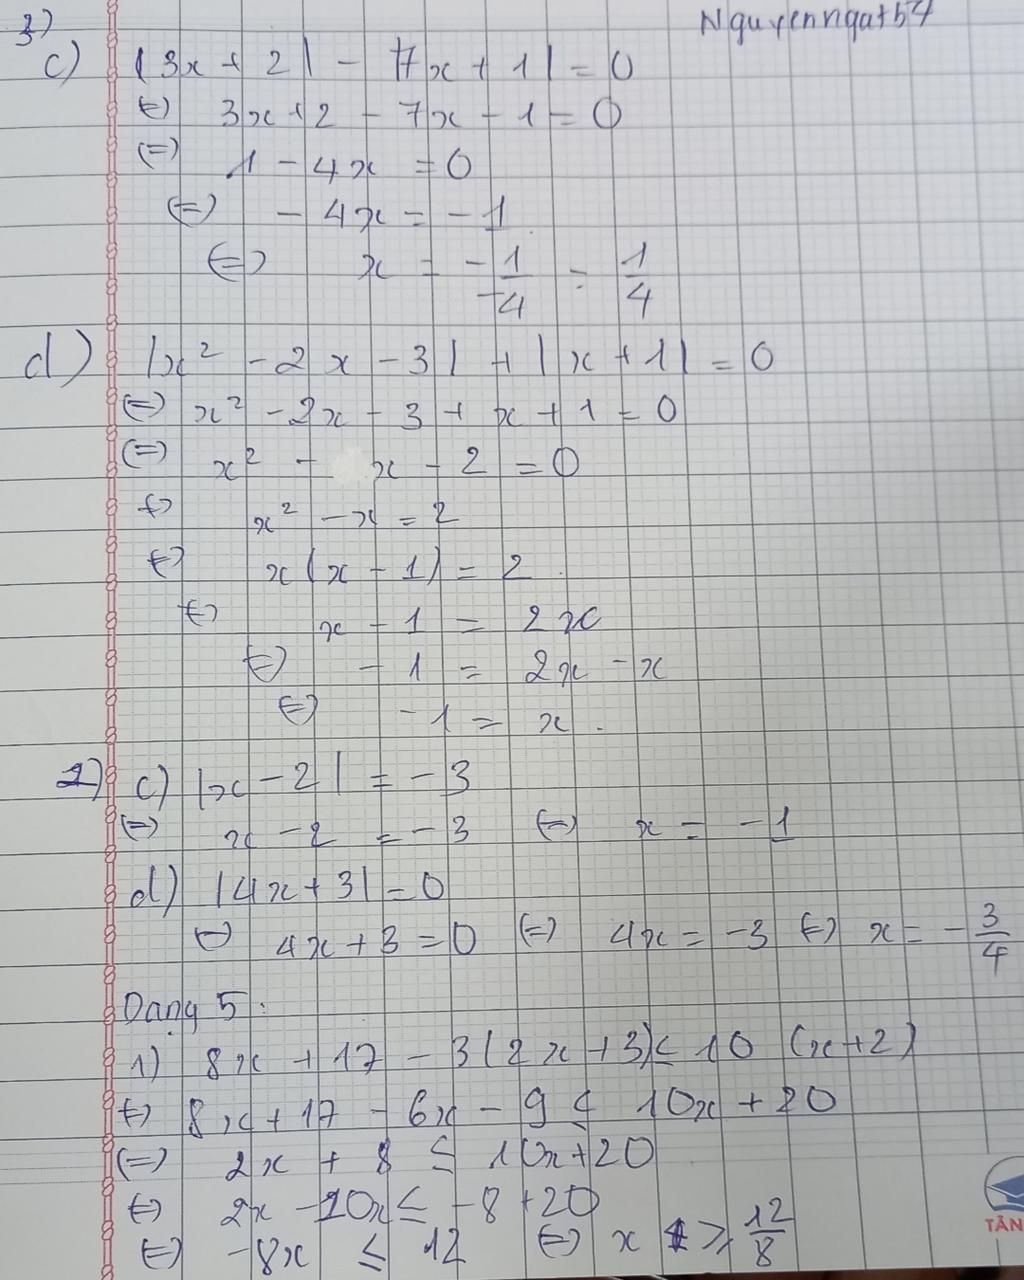 Nguyenngat54
3)
c) |3x + 2| - |7x + 1| = 0
(=) 3x + 2 - 7x - 1 = 0
(=) 1 - 4x = 0
(=) - 4x = - 1
(=) x = -1/-4 = 1/4
d) |x² - 2x - 3| + |x + 1| = 0
(=) x² - 2x - 3 + x + 1 = 0
(=) x² - x - 2 = 0
(=) x² - x = 2
(=) x(x - 1) = 2
(=) x - 1 = 2x
(=) - 1 = 2x - x
(=) - 1 = x.
2) c) |x - 2| = - 3
(=) x - 2 = - 3 (=) x = - 1
d) |4x + 3| = 0
(=) 4x + 3 = 0 (=) 4x = -3 (=) x = -3/4
Dạng 5:
1) 8x + 17 - 3(2x + 3) ≤ 10 (x+2)
(=) 8x + 17 - 6x - 9 ≤ 10x + 20
(=) 2x + 8 ≤ 10x + 20
(=) 2x - 10x ≤ -8 + 20
(=) -8x ≤ 12 (=) x ≥ 12/8
TÂN